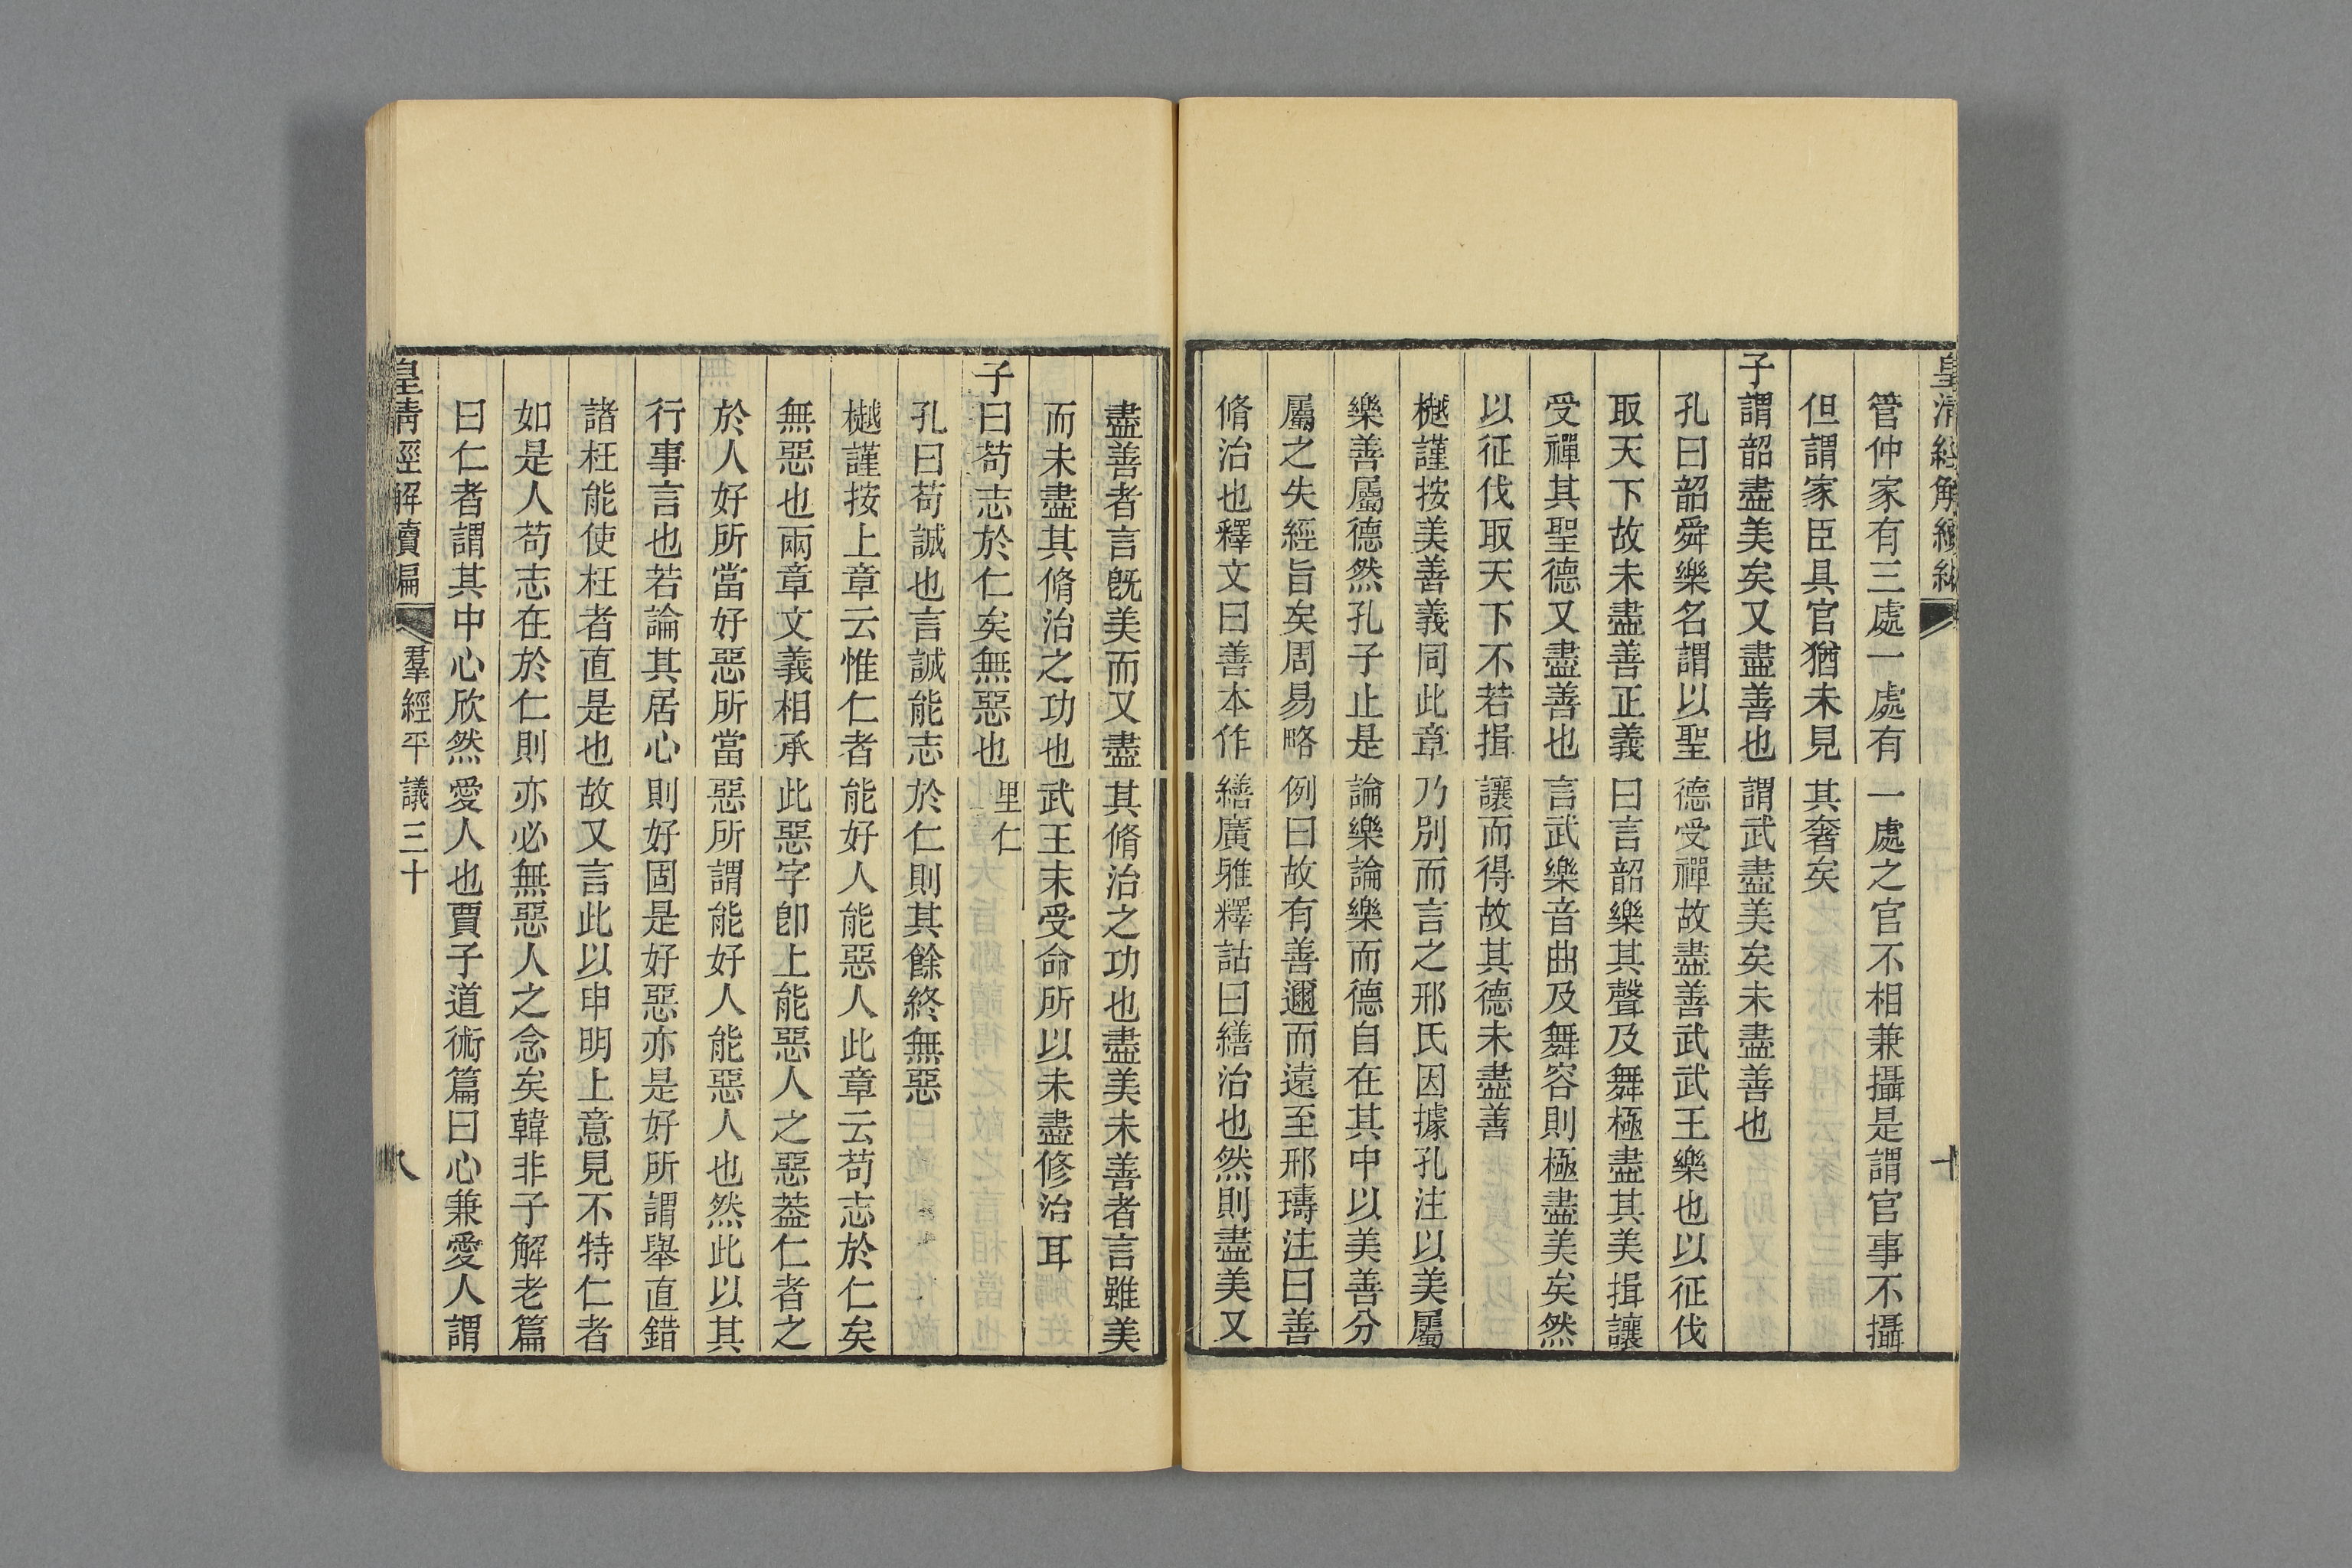 皇清經解續編
管仲家有三處一處有一處之官不相兼攝是謂官事不攝
但謂家臣具官猶未見其奢矣
子謂韶盡美矣又盡善也謂武盡美矣未盡善也
孔曰韶舜樂名謂以聖德受禪故盡善武武王樂也以征伐
取天下故未盡善正義曰言韶樂其聲及舞極盡其美揖讓
受禪其聖德又盡善也言武樂音曲及舞容則極盡美矣然
以征伐取天下不若揖讓而得故其德未盡善
樾謹按美善義同此章乃別而言之邢氏因據孔注以美屬
樂善屬德然孔子止是論樂論樂而德自在其中以美善分
屬之失經旨矣周易略例曰故有善邇而遠至邢璹注曰善
脩治也釋文曰善本作繕廣雅釋詁曰繕治也然則盡美又
盡善者言旣美而又盡其脩治之功也盡美未善者言雖美
而未盡其脩治之功也武王末受命所以未盡修治耳
子曰苟志於仁矣無惡也 里仁
孔曰苟誠也言誠能志於仁則其餘終無惡
樾謹按上章云惟仁者能好人能惡人此章云苟志於仁矣
無惡也兩章文義相承此惡字卽上能惡人之惡葢仁者之
於人好所當好惡所當惡所謂能好人能惡人也然此以其
行事言也若論其居心則好固是好惡亦是好所謂舉直錯
諸枉能使枉者直是也故又言此以申明上意見不特仁者
如是人苟志在於仁則亦必無惡人之念矣韓非子解老篇
曰仁者謂其中心欣然愛人也賈子道術篇曰心兼愛人謂
皇清經解續編 羣經平議三十 八